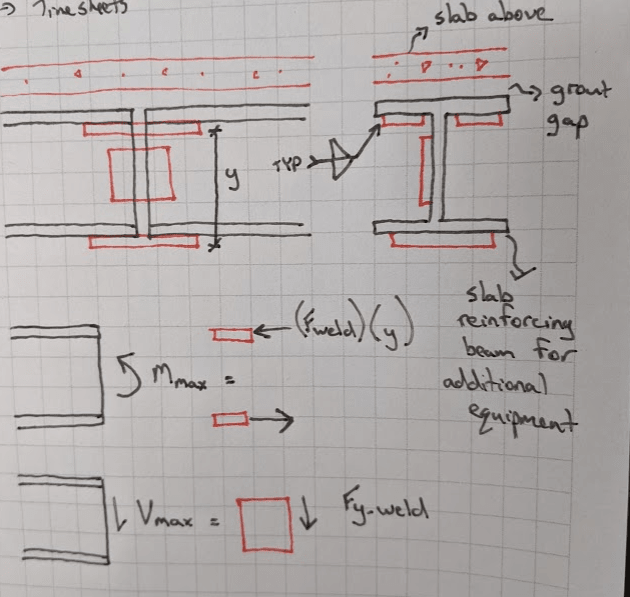 → Timesheets
slab above
grout
gap
TYP
y
slab
reinforcing
beam for
additional
equipment
(Fweld)(y)
Mmax =
Vmax =
Fy-weld